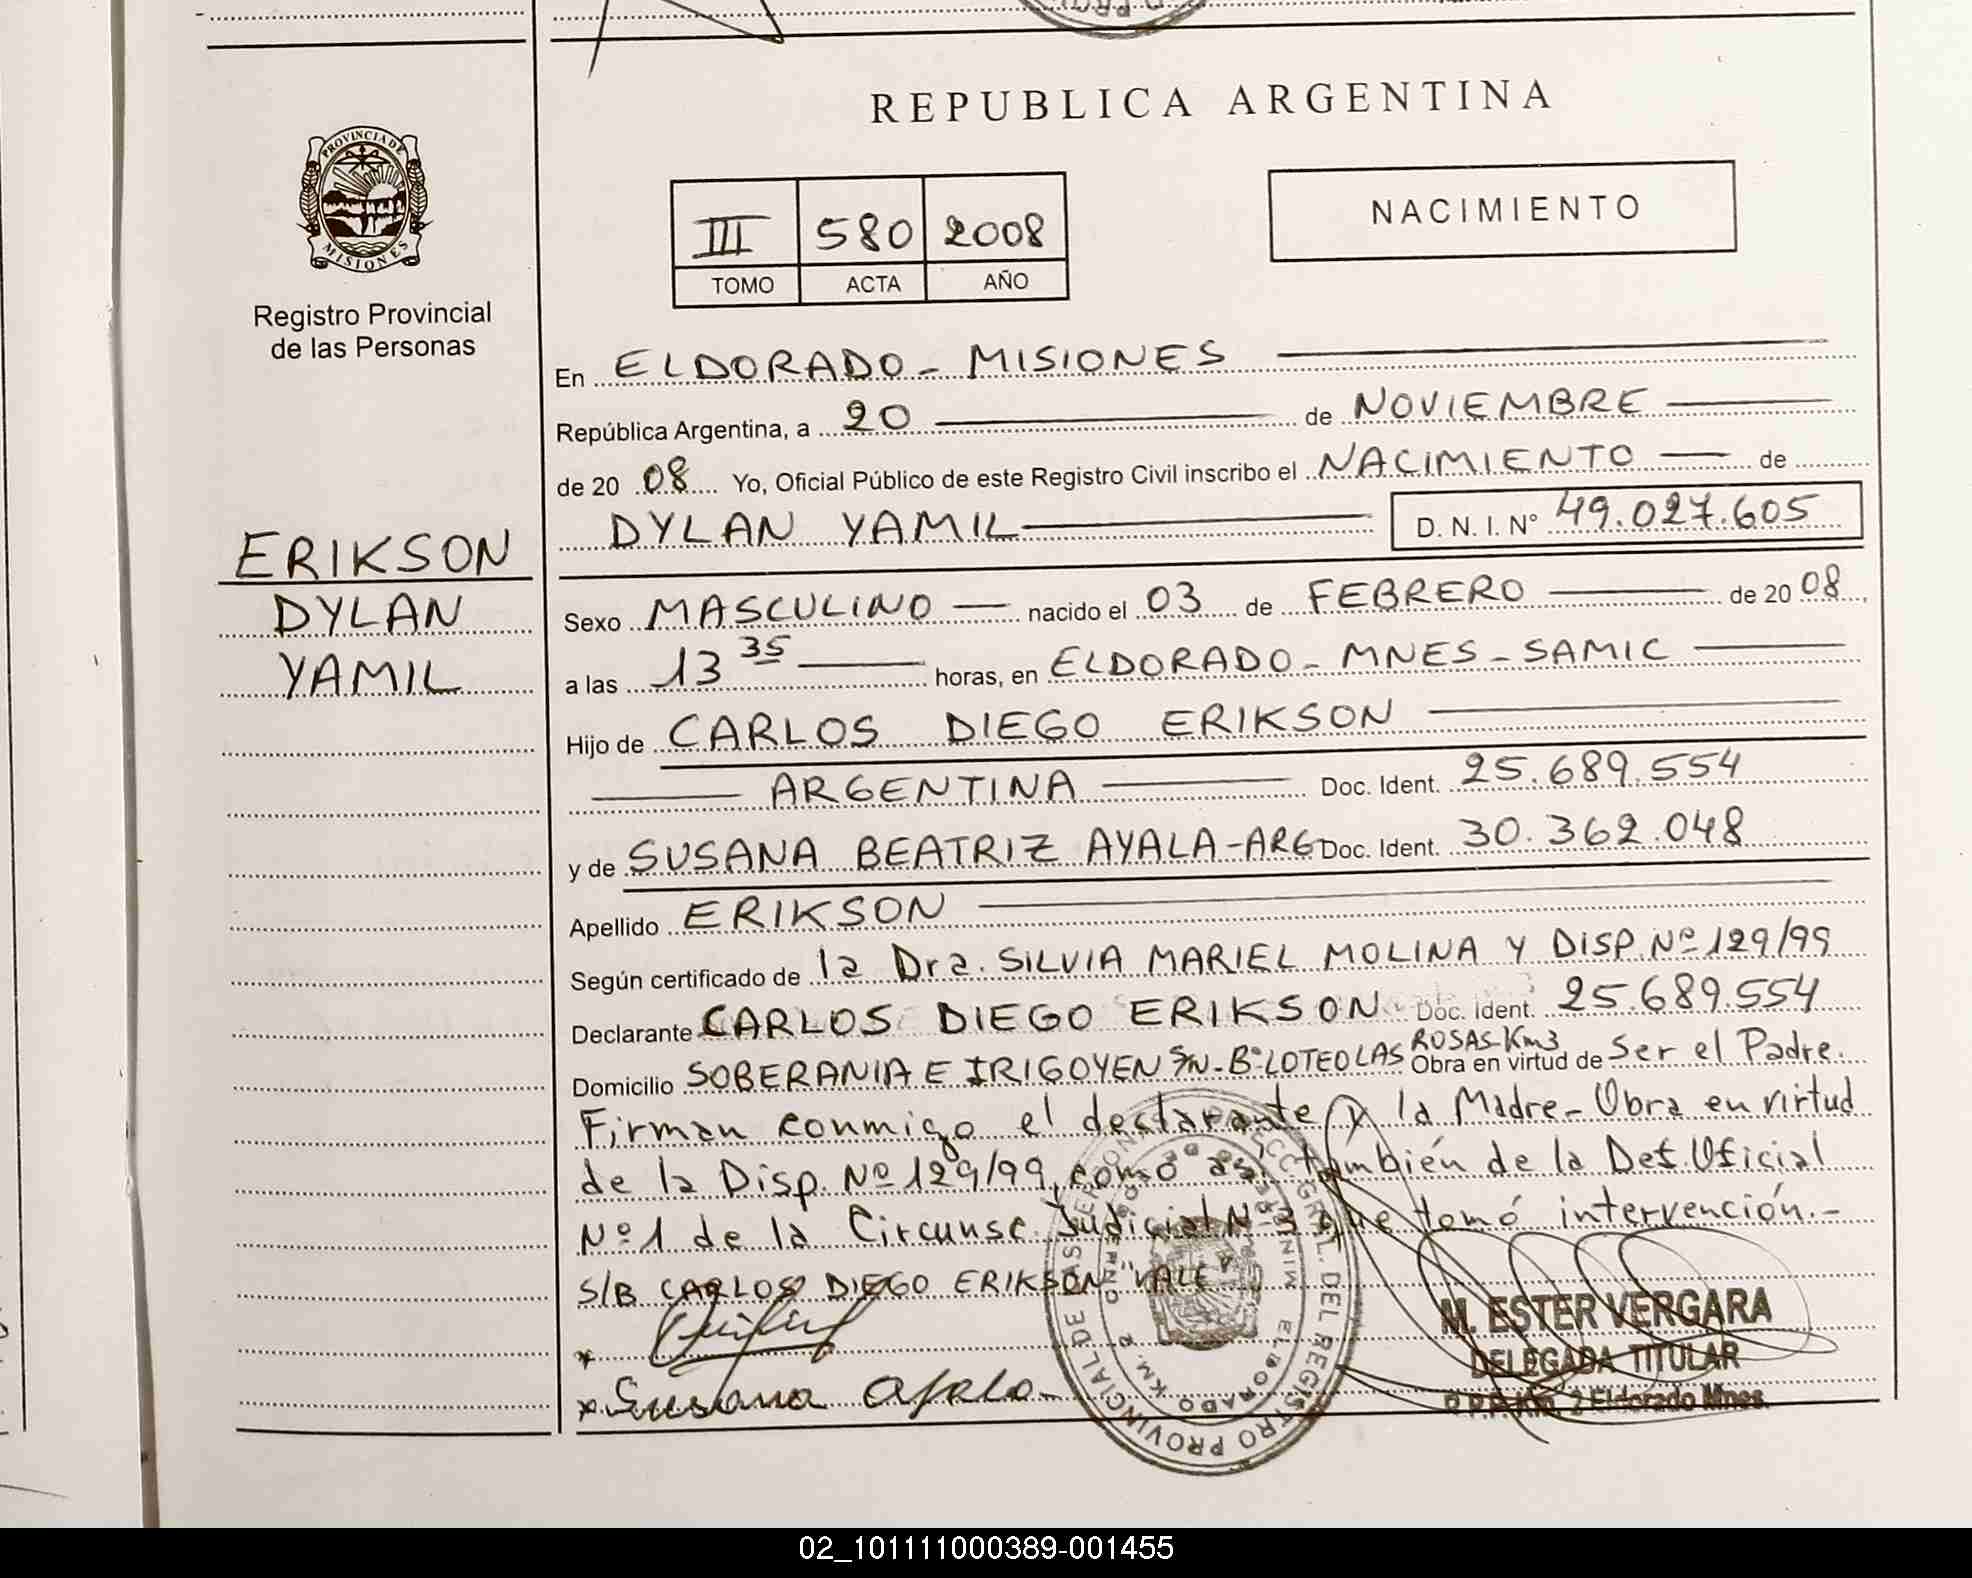 REPUBLICA ARGENTINA
PROVINCIA DE
MISIONES
Registro Provincial
de las Personas
III 580 2008
TOMO ACTA AÑO
NACIMIENTO
ERIKSON
DYLAN
YAMIL
En ELDORADO - MISIONES
República Argentina, a 20 de NOVIEMBRE
de 20 08 Yo, Oficial Público de este Registro Civil inscribo el NACIMIENTO de
DYLAN YAMIL D. N. I. N° 49.027.605
Sexo MASCULINO nacido el 03 de FEBRERO de 20 08
a las 13 35 horas, en ELDORADO - MNES - SAMIC
Hijo de CARLOS DIEGO ERIKSON
ARGENTINA Doc. Ident. 25.689.554
y de SUSANA BEATRIZ AYALA - ARG Doc. Ident. 30.362.048
Apellido ERIKSON
Según certificado de la Dra. SILVIA MARIEL MOLINA Y DISP. Nº 129/99
Declarante CARLOS DIEGO ERIKSON Doc. Ident. 25.689.554
Domicilio SOBERANIA E IRIGOYEN S/N - Bº LOTEO LAS ROSAS - Km3 Obra en virtud de Ser el Padre.
Firman conmigo el declarante y la Madre - Obra en virtud
de la Disp. Nº 129/99, como así también de la Def. Oficial
Nº 1 de la Circunsc. Judicial Nº 3 que tomó intervención.-
S/B CARLOS DIEGO ERIKSON "VALE"
x Susana Ayala
M. ESTER VERGARA
DELEGADA TITULAR
R.P.P. Km. 2 Eldorado Mnes.
02_101111000389-001455